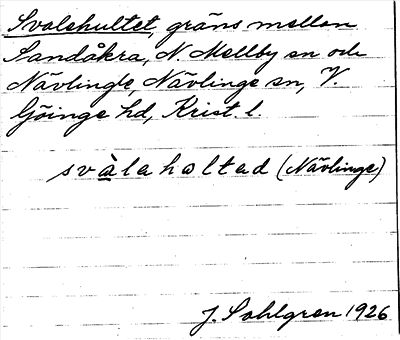 Svalehultet, gräns mellan
Sandåkra, N. Mellby sn och
Nävlinge, Nävlinge sn, V.
Göinge hd, Krist. l.
svàlahọltad (Nävlinge)
J. Sahlgren 1926